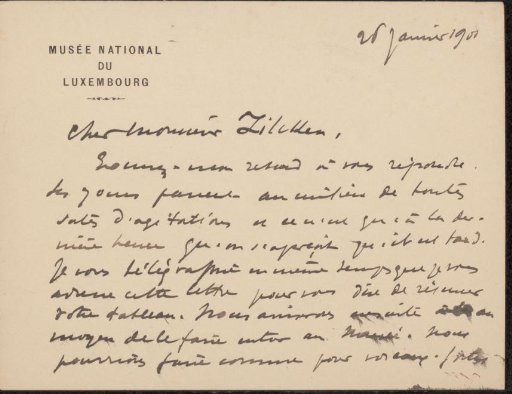 26 Janvier 1901
MUSÉE NATIONAL
DU
LUXEMBOURG
Cher Monsieur Zilcken,
Excusez-mon retard à vous répondre.
Les jours passent au milieu de toutes
sortes d'agitations et ce n'est qu'à la der-
nière heure qu'on s'aperçoit qu'il est tard.
Je vous télégraphie en même temps que je vous
adresse cette lettre pour vous dire de réserver
votre tableau. Nous aviserons ensuite au
moyen de le faire entrer au Musée. Nous
pourrions faire comme pour